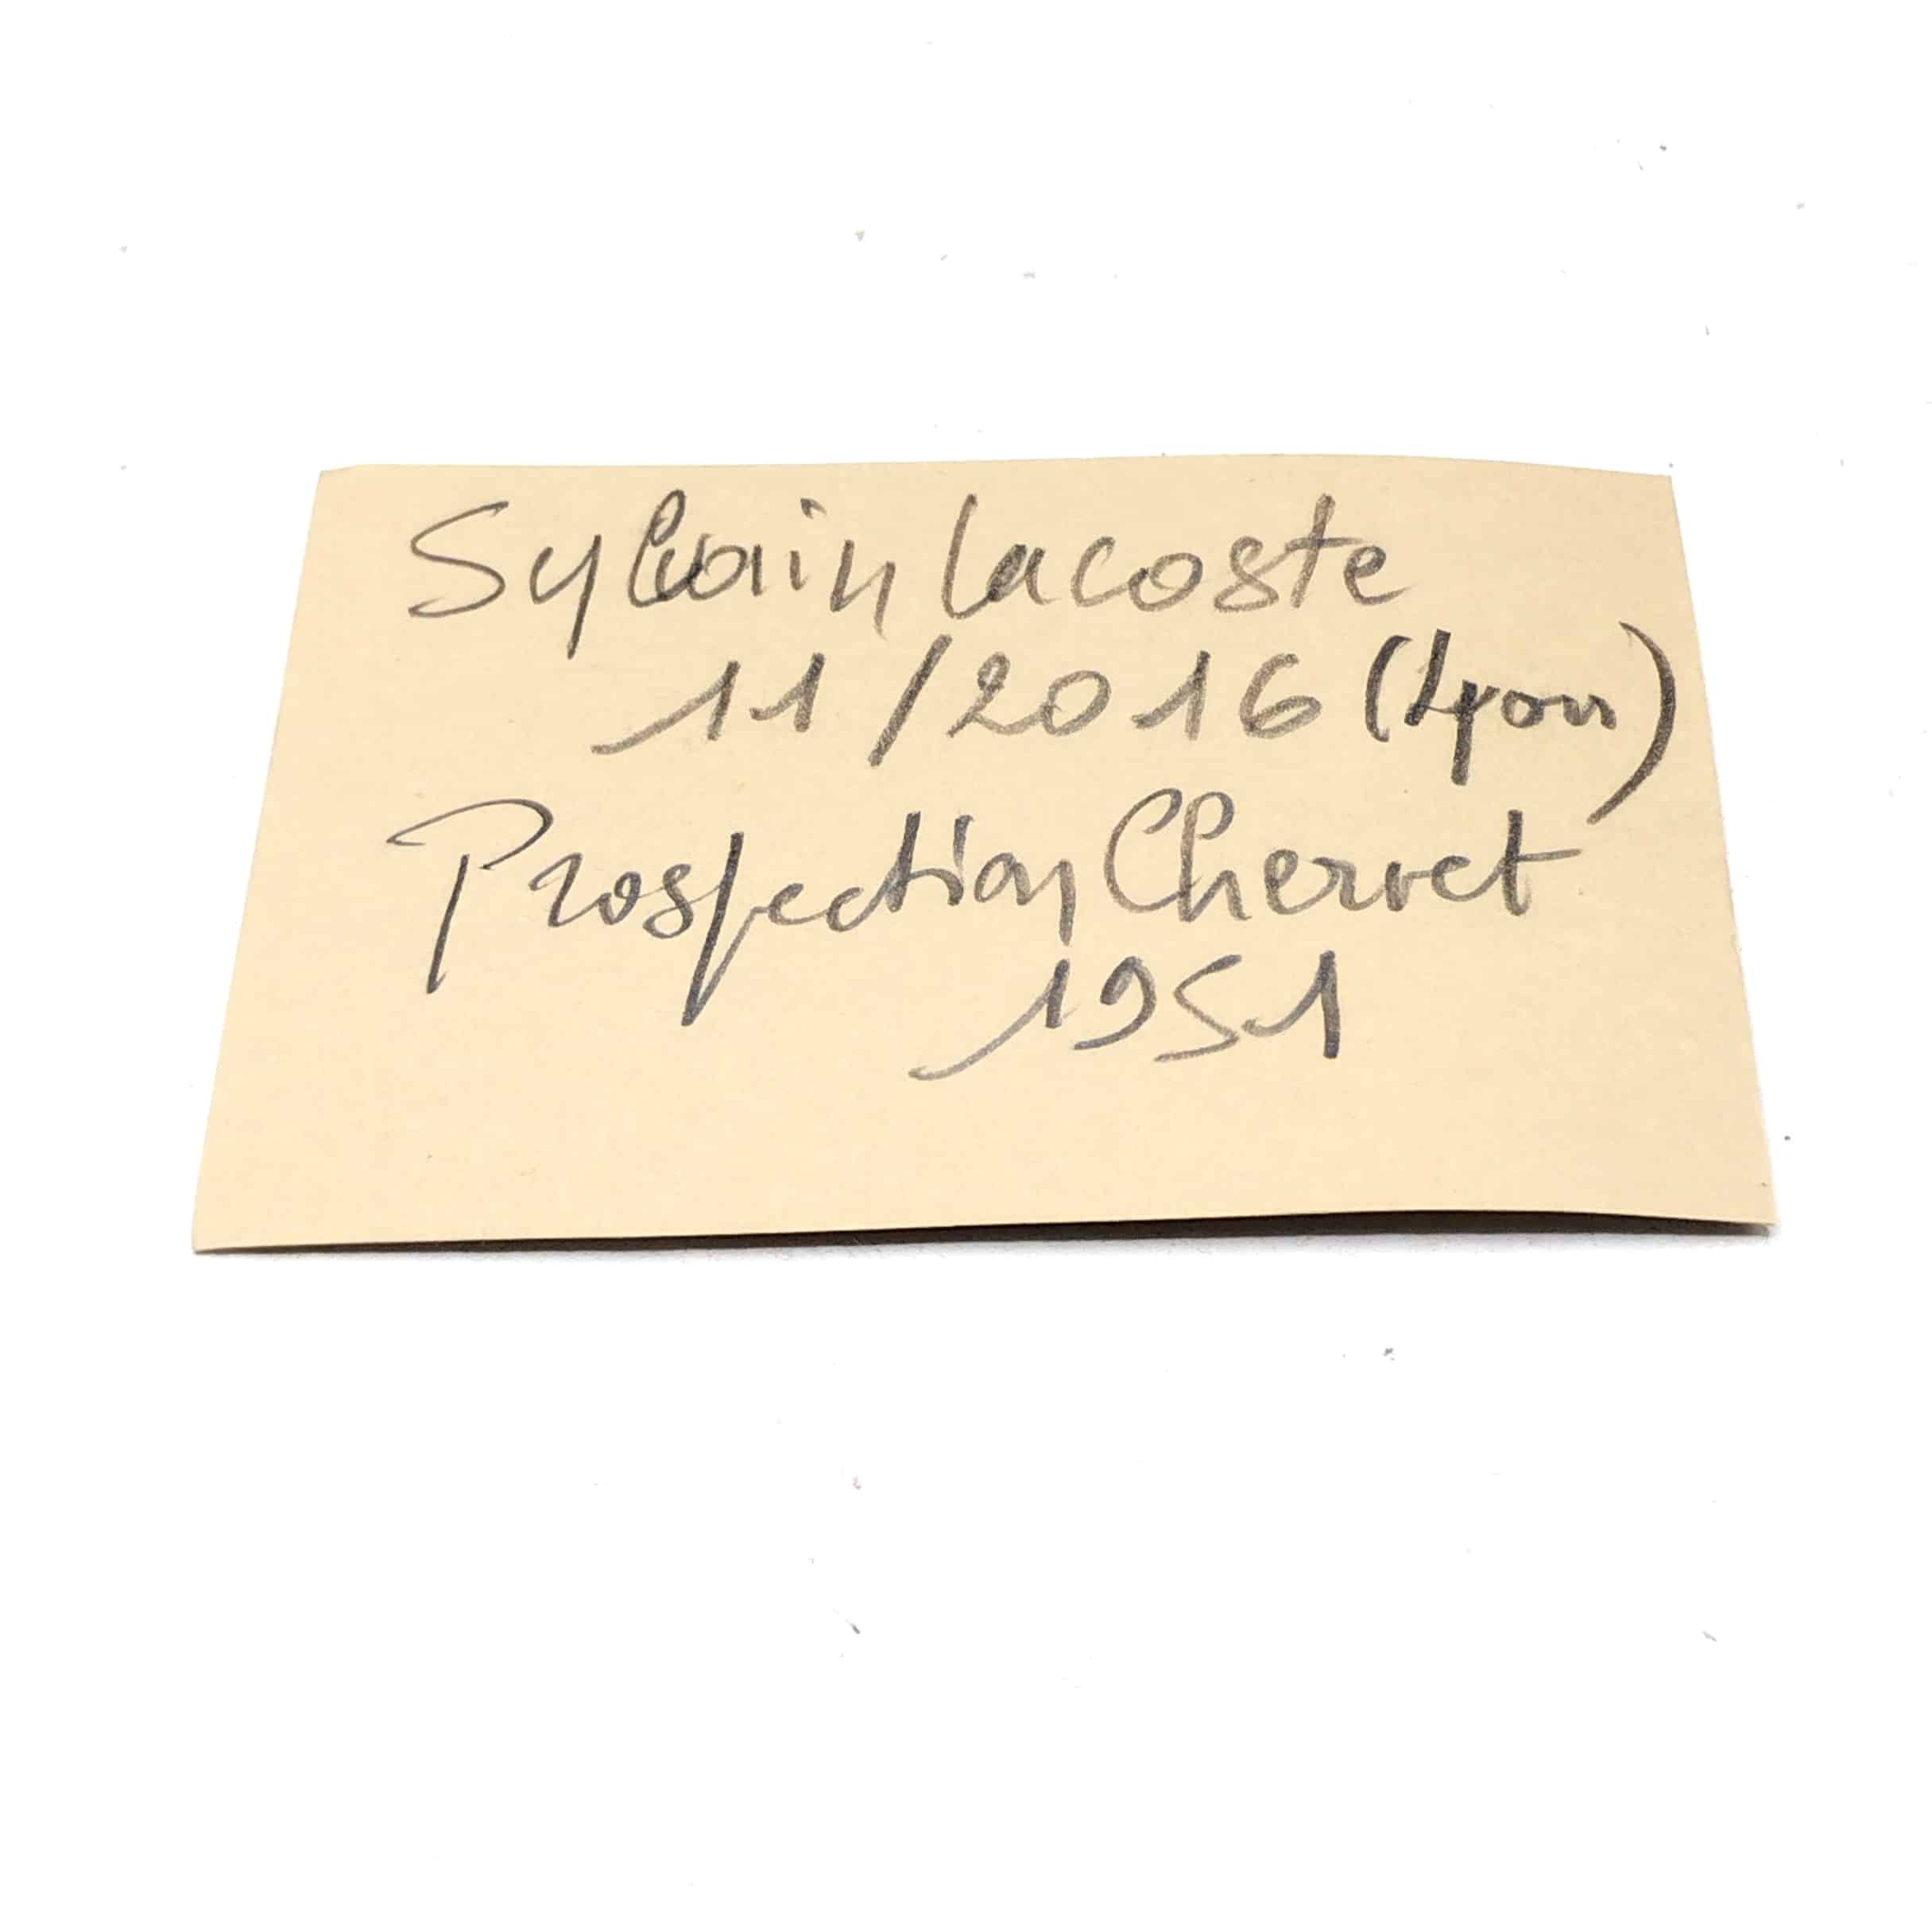 Sylvain Lacoste
11/2016 (Lyon)
Prospection Chervet
1951